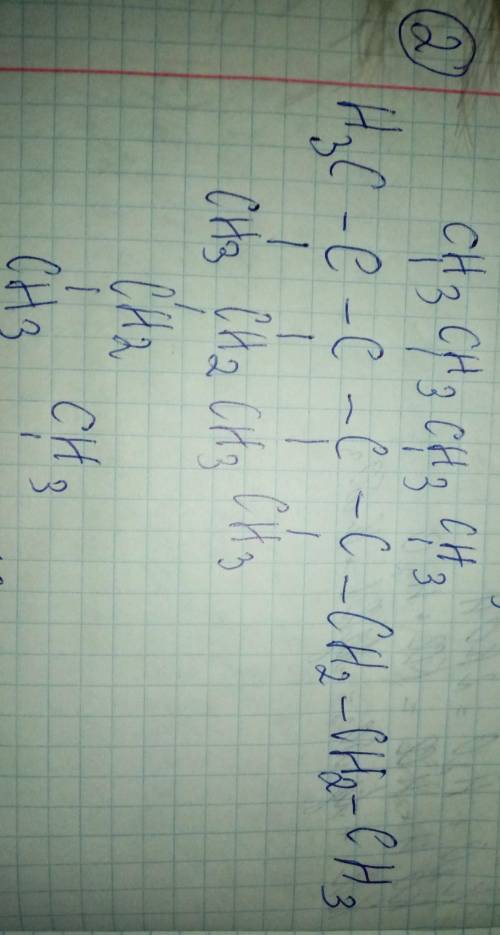 2
CH3 CH3 CH3 CH3
H3C - C - C - C - C - CH2 - CH2 - CH3
CH3 CH2 CH3 CH3
CH2
CH3 CH3